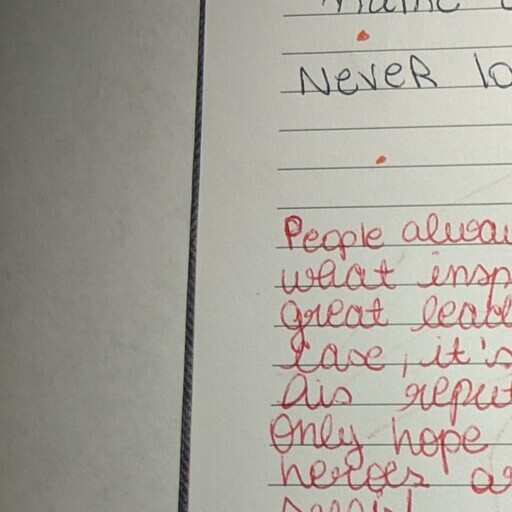 Never lo
People alway
what insp
great lead
case, it's
his reput
Only hope
heroes a